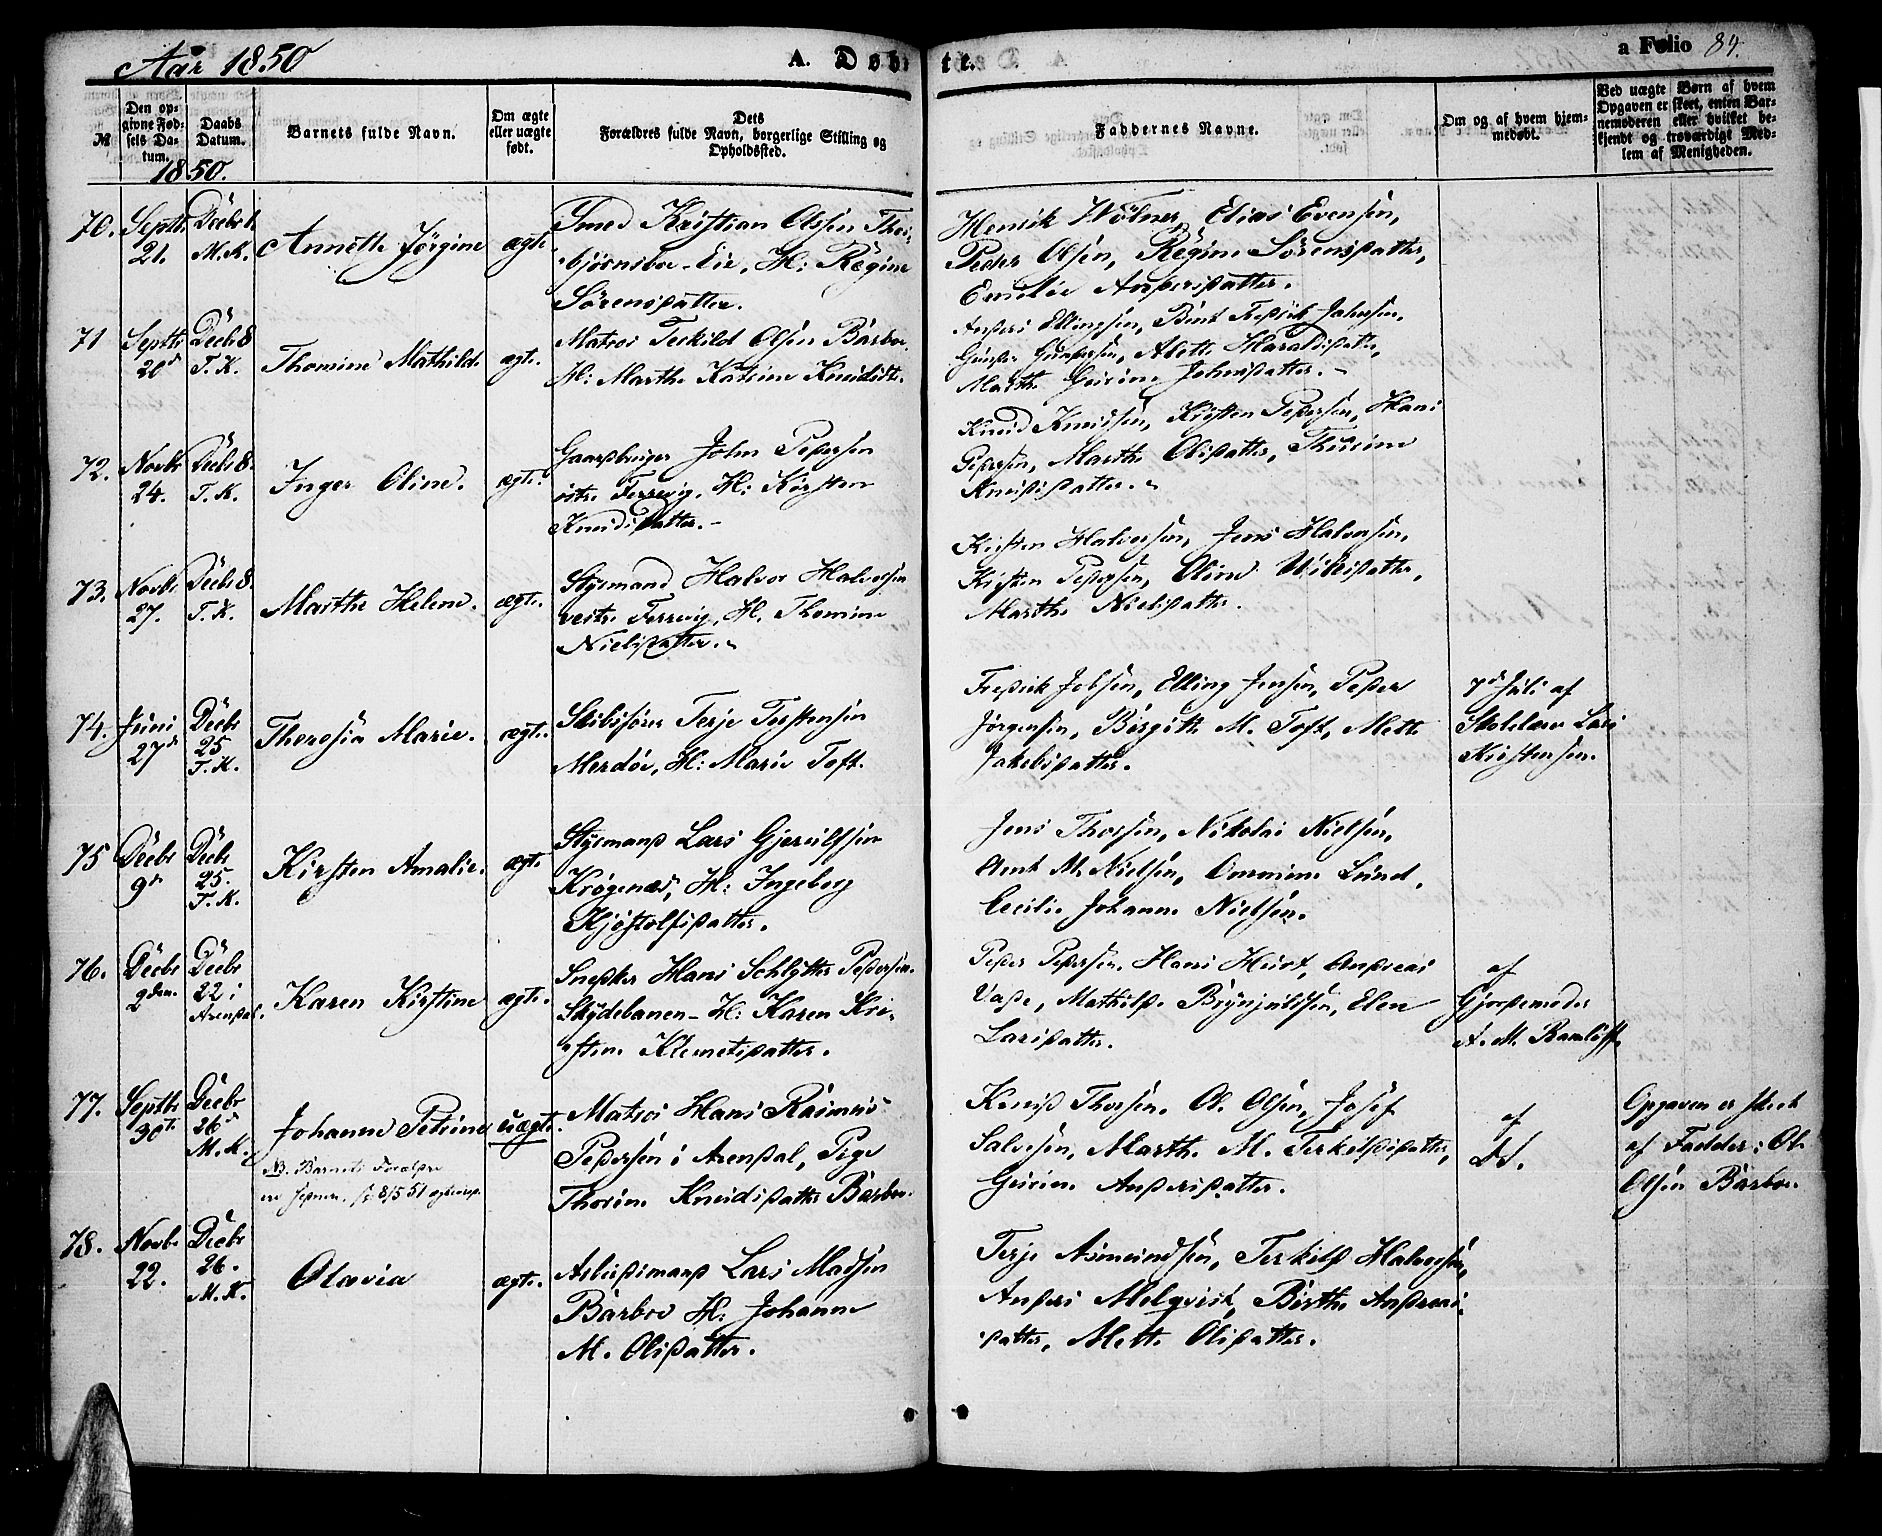 Aar 1850
A. Døbte.
a Folio 84.
№
Den opgivne Fødsels Datum.
Daabs Datum.
Barnets fulde Navn.
Om ægte eller uægte født.
Dets Forældres fulde Navn, borgerlige Stilling og Opholdssted.
Faddernes Navne.
Om og af hvem hjemmedøbt.
Ved uægte Børn af hvem Opgaven er skeet, enten Barnemoderen eller hvilket bekjendt og troværdigt Medlem af Menigheden.
1850.
70. Septbr 21. Decbr 1. M.K. Annette Jørgine ægte
Smed Kristian Olssen Thorbjørnsboe-Eie, H: Regine Sørensdatter.
Henrik Wölner, Elias Evensen,
Peder Olsen, Regine Sörensdatter,
Emilie Andersdatter.
71 Septbr 20d Decbr 8 T.K. Thomine Mathilde ægte.
Matros Terkild Olsen Barboe.
H: Marthe Katrine Knudsdt.
Anders Ellingsen, Bent Fredrik Johnsen,
Gunder Gundersen, Alette Haraldsdatter,
Marthe Gurine Johnsdatter.-
72. Novbr 24. Decbr 8. T.K. Inger Oline. ægte.
Gaardbruger John Pedersen
østre Ferrvig. H: Kirsten
Knudsdatter.-
Knud Knudsen, Kristen Pedersen, Hans
Pedersen, Marthe Olsdatter, Thurine
Knudsdatter.
73. Novbr 27. Decbr 8 T.K. Marthe Helene. ægte.
Styrmand Halvor Halvorsen
vestre Ferrvig, H. Thomine
Nielsdatter.
Kristen Halvorsen, Jens Halvorsen,
Kristen Pedersen, Oline Nilsdatter,
Marthe Nielsdatter.
74. Juni 27d Decbr 25 T.K. Theresia Marie. ægte.
Skibsfører Terje Terjesen
Merdøe, H: Marie Toft.
Fredrik Jobsen, Elling Jensen, Peder
Jørgensen, Birgitte M. Toft, Mette
Jakobsdatter.
7d Juli af
Skolelærer Lars
Kristensen.
75 Decbr 9d Decbr 25. T.K. Kirsten Amalie. ægte
Styrmand Lars Gjerulfsen
Krøgenæs, H: Ingeborg
Kjøstolfsdatter.
Jens Thorsen, Nikolai Nielsen,
Ant M. Nielsen, Ommine Lund,
Cecilie Johanne Nielsen.
76. Decbr 2den. Decbr 22 i Arendal. Karen Kirstine ægte.
Snedker Hans Schlytter Pedersen.
Skydebanen- H: Karen Kristine Klemetsdatter.
Peder Pedersen. Hans Hurt, Andreas
Vase, Mathilde Brynjulfsen, Elen
Larsdatter.
af
Gjordemoder
A. M. Ramløff
77. Septbr 30te. Decbr 26d M.K. Johanne Petrine uægte.
NB. Barnets Forældre
Matros Hans Rasmus
Pedersen i Arendal, Pige
Thorine Knudsdatter Barboe.
Knud Thorsen. Ole Olsen, Josef
Salvesen, Marthe M. Terkildsdatter,
Gurine Andersdatter.
af
Do.
Opgaven er skeet
af Fadder: Ole
Olsen Barboe.
78. Novbr 22. Decbr 26. M.K. Olavia ægte.
Arbeidsmand Lars Madsen
Barboe H: Johanne
M. Olsdatter.
Terje Asmundsen, Terkild Halvorsen,
Anders Molqvist, Birthe Andreasdatter, Mette Olsdatter.